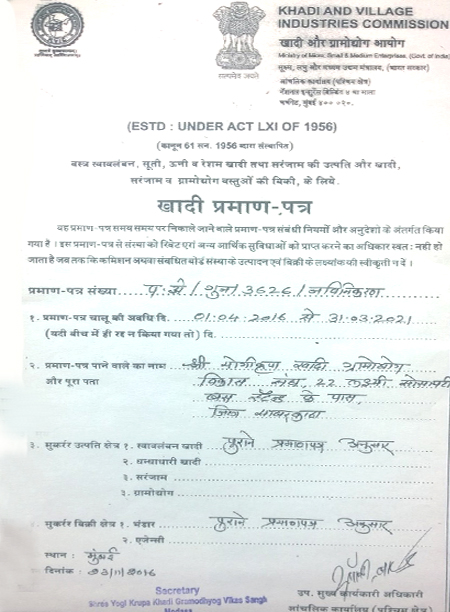 KHADI AND VILLAGE
INDUSTRIES COMMISSION
खादी और ग्रामोद्योग आयोग
Ministry of Micro, Small & Medium Enterprises, (Govt. of India)
सूक्ष्म, लघु और मध्यम उद्यम मंत्रालय, (भारत सरकार)
आंचलिक कार्यालय (पश्चिम क्षेत्र)
नॅशनल इन्शुरेंस बिल्डिंग ४ था माला
चर्चगेट, मुंबई ४०० ०२०.
सत्यमेव जयते
(ESTD : UNDER ACT LXI OF 1956)
(कानून 61 सन. 1956 द्वारा संस्थापित)
वस्त्र स्वावलंबन, सूती, ऊनी व रेशम खादी तथा सरंजाम की उत्पति और खादी,
सरंजाम व ग्रामोद्योग वस्तुओं की बिक्री, के लिये.
खादी प्रमाण-पत्र
यह प्रमाण-पत्र समय समय पर निकाले जाने वाले प्रमाण-पत्र संबंधी नियमों और अनुदेशों के अंतर्गत किया
गया है । इस प्रमाण-पत्र से संस्था को रिबेट एवं अन्य आर्थिक सुविधाओं को प्राप्त करने का अधिकार स्वतः नही हो
जाता है जब तक कि कमिशन अथवा संबंधित बोर्ड संस्था के उत्पादन एवं बिक्री के लक्ष्यांक की स्वीकृती न दें ।
प्रमाण-पत्र संख्या प.क्षे/गुज/3626/नविनिकरण
१. प्रमाण-पत्र चालू की अवधि दि. 01.04.2016 से 31.03.2021
(यदी बीच में ही रद्द न किया गया तो) दि.
२. प्रमाण-पत्र पाने वाले का नाम श्री योगीकृपा खादी ग्रामोद्योग
और पूरा पता विकास संघ, 22 लक्ष्मी सोसायटी
बस स्टैन्ड के पास,
जिला साबरकांठा
३. मुकर्रर उत्पति क्षेत्र १. स्वावलंबन खादी पुराने प्रमाणपत्र अनुसार
२. धम्माधारी खादी
३. सरंजाम
३. ग्रामोद्योग
मुकर्रर बिक्री क्षेत्र १. भंडार पुराने प्रमाणपत्र अनुसार
२. एजेन्सी
स्थान : मुंबई
दिनांक : 23/11/2016
Secretary
Shree Yogi Krupa Khadi Gramodhyog Vikas Sangh
Modasa
उप. मुख्य कार्यकारी अधिकारी
आंचलिक कार्यालय (पश्चिम क्षेत्र)